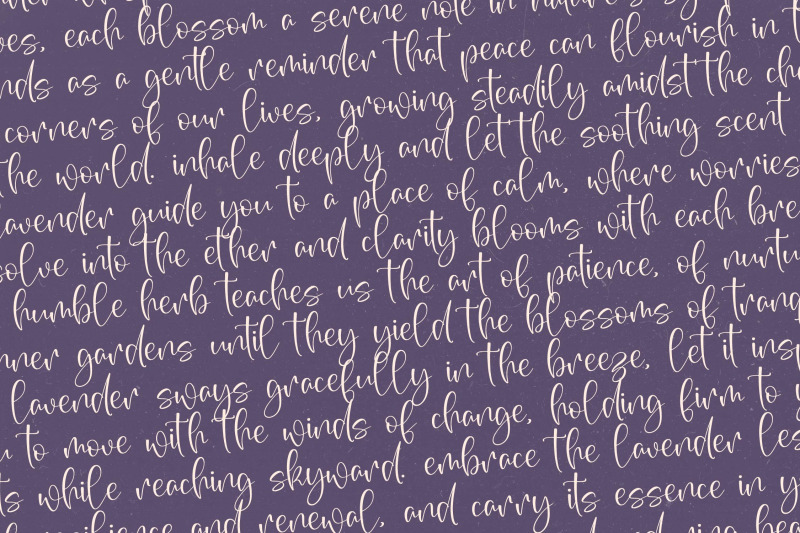 oes, each blossom a serene note in nature's
nds as a gentle reminder that peace can flourish in t
corners of our lives, growing steadily amidst the cha
the world. inhale deeply and let the soothing scent
lavender guide you to a place of calm, where worries
solve into the ether and clarity blooms with each bre
humble herb teaches us the art of patience, of nurtu
nner gardens until they yield the blossoms of tranq
lavender sways gracefully in the breeze, let it insp
u to move with the winds of change, holding firm to y
ts while reaching skyward. embrace the lavender les
resilience and renewal, and carry its essence in y